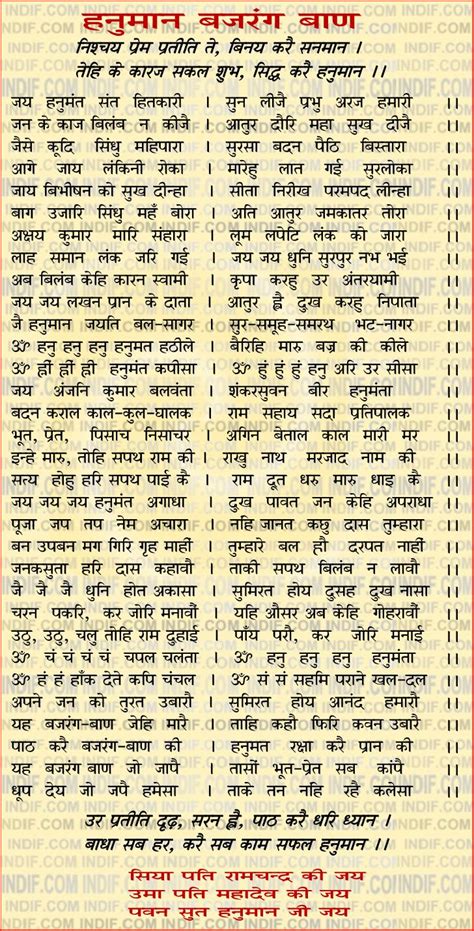 हनुमान बजरंग बाण
निश्चय प्रेम प्रतीति ते, बिनय करै सनमान ।
तेहि के कारज सकल शुभ, सिद्ध करै हनुमान ।।
जय हनुमंत संत हितकारी । सुन लीजै प्रभु अरज हमारी ।।
जन के काज बिलंब न कीजै । आतुर दौरि महा सुख दीजै ।।
जैसे कूदि सिंधु महिपारा । सुरसा बदन पैठि बिस्तारा ।।
आगे जाय लंकिनी रोका । मारेहु लात गई सुरलोका ।।
जाय बिभीषन को सुख दीन्हा । सीता निरखि परमपद लीन्हा ।।
बाग उजारि सिंधु महँ बोरा । अति आतुर जमकातर तोरा ।।
अक्षय कुमार मारि संहारा । लूम लपेटि लंक को जारा ।।
लाह समान लंक जरि गई । जय जय धुनि सुरपुर नभ भई ।।
अब बिलंब केहि कारन स्वामी । कृपा करहु उर अंतरयामी ।।
जय जय लखन प्रान के दाता । आतुर ह्वै दुख करहु निपाता ।।
जै हनुमान जयति बल-सागर । सुर-समूह-समरथ भट-नागर ।।
ॐ हनु हनु हनु हनुमत हठीले । बैरिहि मारु बज्र की कीले ।।
ॐ ह्नीं ह्नीं ह्नीं हनुमंत कपीसा । ॐ हुं हुं हुं हनु अरि उर सीसा ।।
जय अंजनि कुमार बलवंता । शंकरसुवन बीर हनुमंता ।।
बदन कराल काल-कुल-घालक । राम सहाय सदा प्रतिपालक ।।
भूत, प्रेत, पिसाच निसाचर । अगिन बेताल काल मारी मर ।।
इन्हे मारु, तोहि सपथ राम की । राखु नाथ मरजाद नाम की ।।
सत्य होहु हरि सपथ पाई कै । राम दूत धरु मारु धाइ कै ।।
जय जय जय हनुमंत अगाधा । दुख पावत जन केहि अपराधा ।।
पूजा जप तप नेम अचारा । नहि जानत कछु दास तुम्हारा ।।
बन उपबन मग गिरि गृह माहीं । तुम्हारे बल हौ दरपत नाहीं ।।
जनकसुता हरि दास कहावौ । ताकी सपथ बिलंब न लावौ ।।
जै जै जै धुनि होत अकासा । सुमिरत होय दुसह दुख नासा ।।
चरन पकरि, कर जोरि मनावौं । यहि औसर अब केहि गोहरावौं ।।
उठु, उठु, चलु तोहि राम दुहाई । पाँय परौं, कर जोरि मनाई ।।
ॐ चं चं चं चं चपल चलंता । ॐ हनु हनु हनु हनु हनुमंता ।।
ॐ हं हं हाँक देते कपि चंचल । ॐ सं सं सहमि पराने खल-दल ।।
अपने जन को तुरत उबारौ । सुमिरत होय आनंद हमारौ ।।
यह बजरंग-बाण जेहि मारै । ताहि कहौ फिरि कवन उबारै ।।
पाठ करै बजरंग-बाण की । हनुमत रक्षा करै प्रान की ।।
यह बजरंग बाण जो जापै । तासों भूत-प्रेत सब कांपै ।।
धूप देय जो जपै हमेसा । ताके तन नहि रहै कलेसा ।।
उर प्रतीति दृढ़, सरन ह्वै, पाठ करै धरि ध्यान ।
बाधा सब हर, करै सब काम सफल हनुमान ।।
सिया पति रामचन्द्र की जय
उमा पति महादेव की जय
पवन सुत हनुमान जी जय